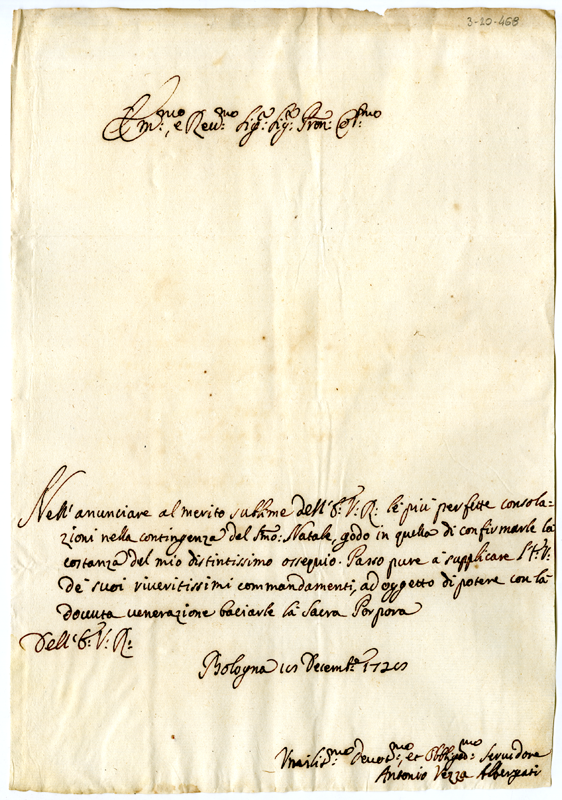 3-20-468
Em.mo, e Rev.mo Sig.r Sig.r Pron: Col.mo
Nell'anunciare al merito sublime dell'E: V: R: le più perfette consola-
zioni nella contingenza del Smo: Natale, godo in quella di confirmarle la
costanza del mio distintissimo ossequio. Passo pure a supplicare l'E: V:
de suoi riveritissimi commandamenti, ad oggetto di potere con la
dovuta venerazione baciarle la Sacra Porpora
Dell'E: V: R:
Bologna Decemb.e
Umiliss.mo Devot.mo, et Obblig.mo Servidore
Antonio Vezza Albergati